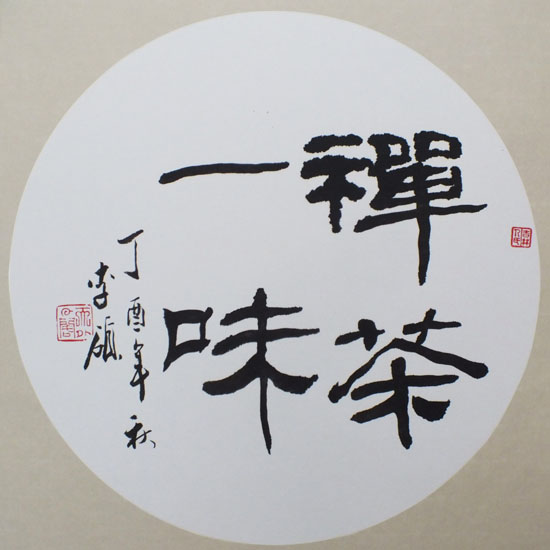 禪茶
一味
丁酉年秋
李